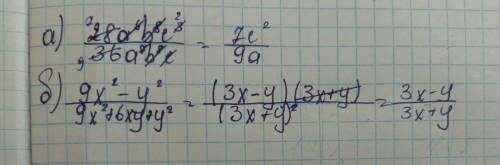 а) 28a⁶b⁸c³/36a⁷b⁸c = 7c²/9a
б) 9x²-y²/9x²+6xy+y² = (3x-y)(3x+y)/(3x+y)² = 3x-y/3x+y